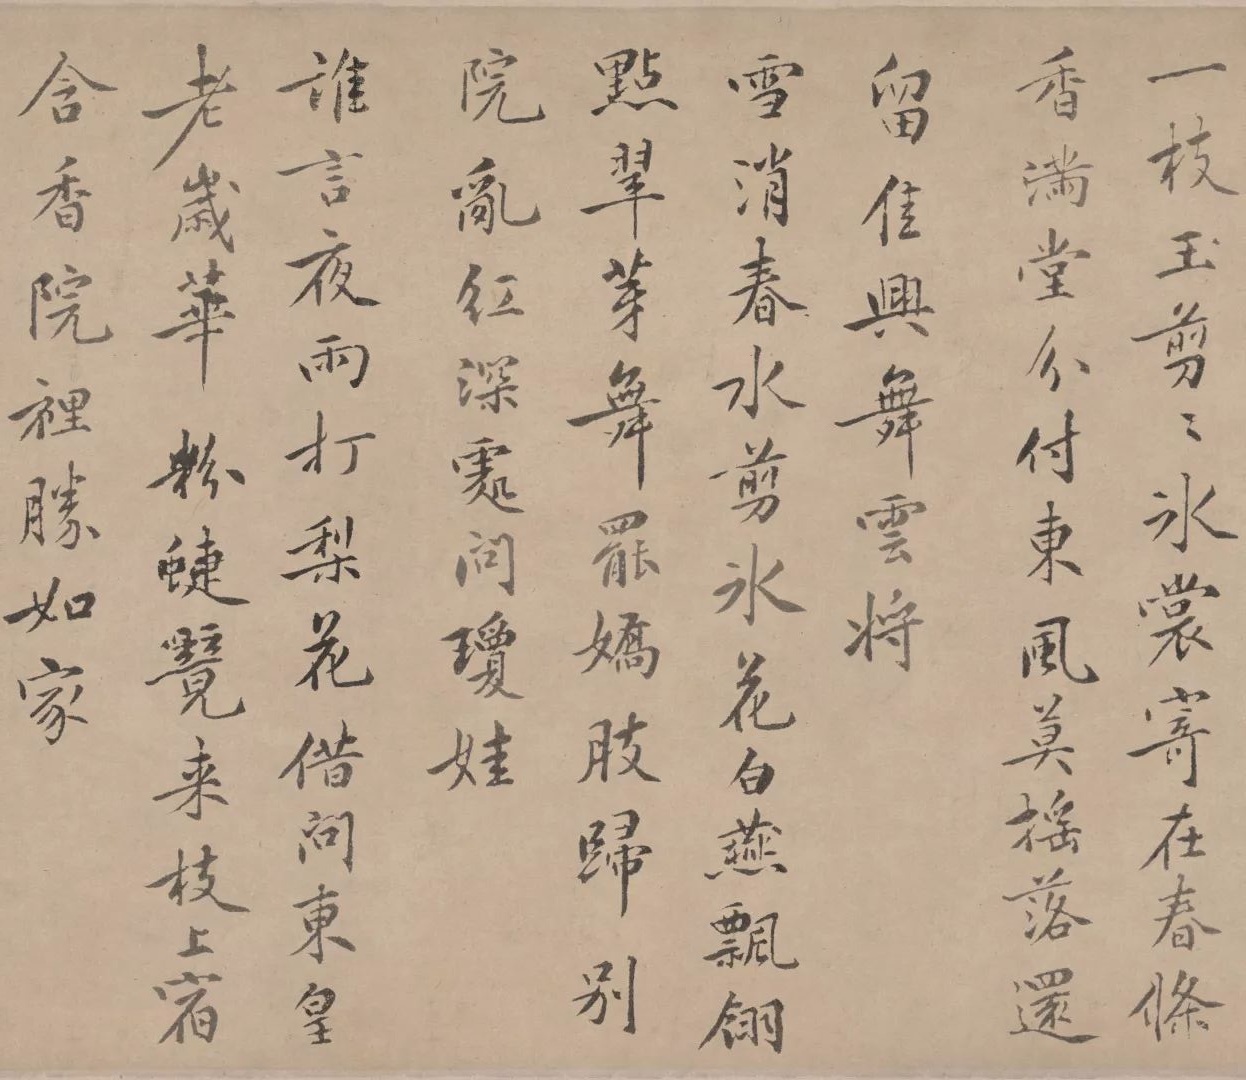 一枝玉剪〻冰裳寄在春條
香滿堂分付東風莫摇落還
留佳興舞雲將
雪消春水剪冰花白燕飄翎
點翠芽舞罷嬌肢歸別
院亂紅深處問瓊娃
誰言夜雨打梨花借問東皇
老歲華粉蜨覺来枝上宿
含香院裡勝如家